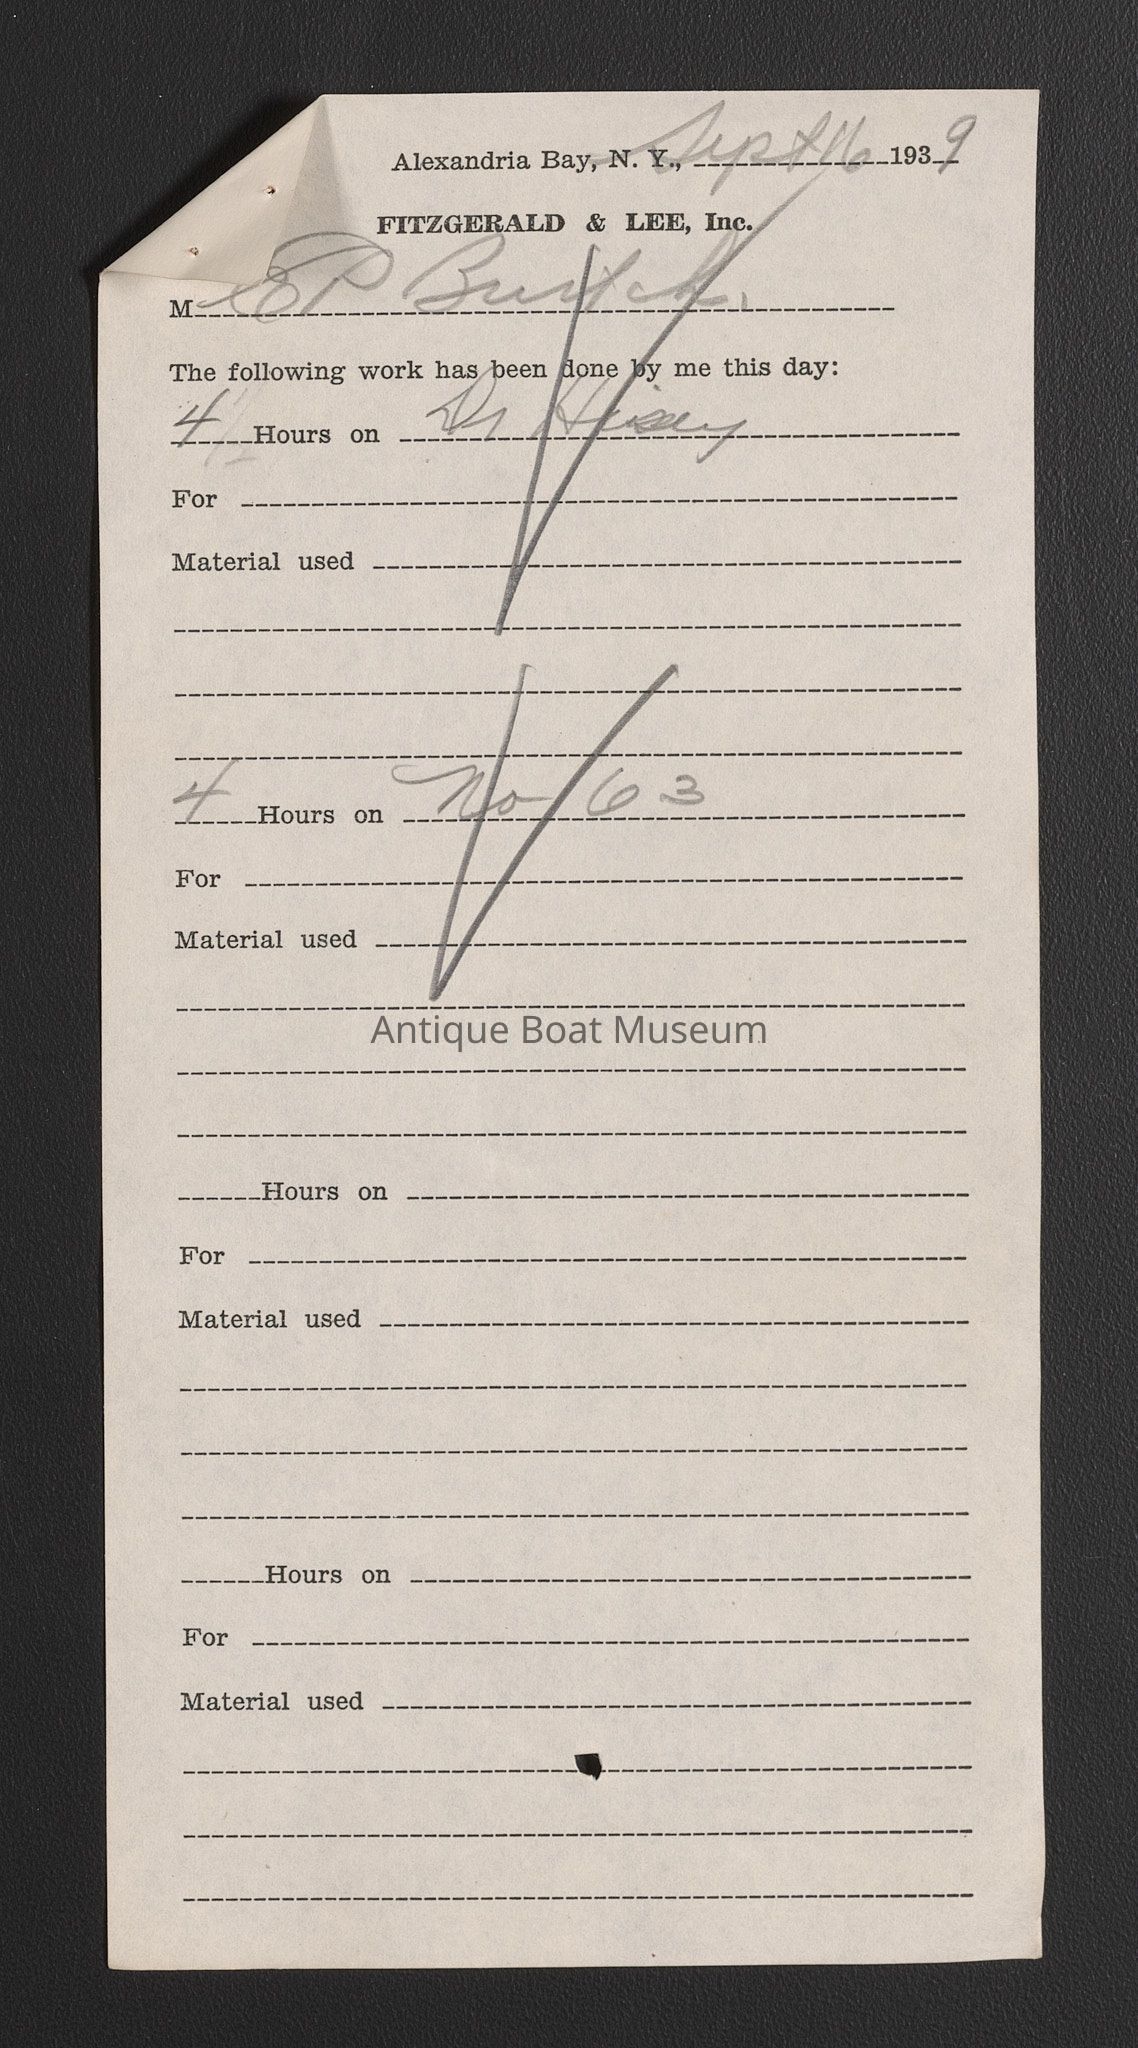 Alexandria Bay, N. Y., Sept 16 1939
FITZGERALD & LEE, Inc.
M EP Burtch.
The following work has been done by me this day:
4 1/2 Hours on Dr
For
Material used
4 Hours on No 63
For
Material used
Antique Boat Museum
Hours on
For
Material used
Hours on
For
Material used